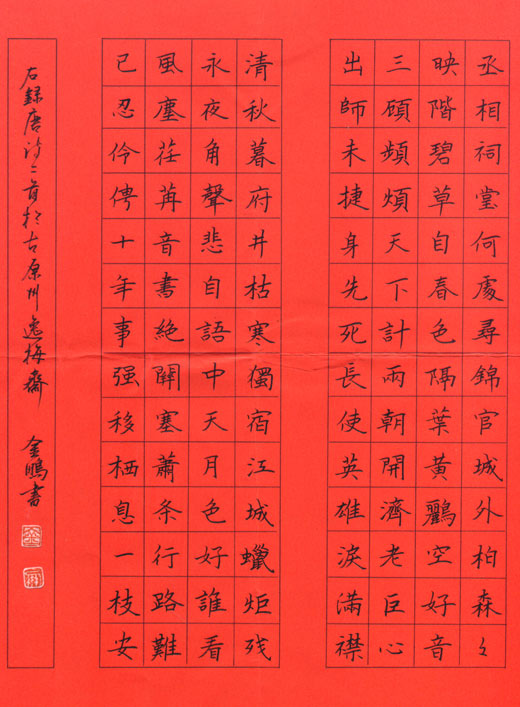 丞相祠堂何處尋錦官城外柏森々
映階碧草自春色隔葉黄鸝空好音
三顧頻煩天下計兩朝開濟老臣心
出師未捷身先死長使英雄淚滿襟
清秋暮府井枯寒獨宿江城蠟炬残
永夜角聲悲自語中天月色好誰看
風塵荏苒音書絶關塞蕭条行路難
已忍伶俜十年事强移栖息一枝安
右録唐詩二首於古原州逸梅齋 金鵬書